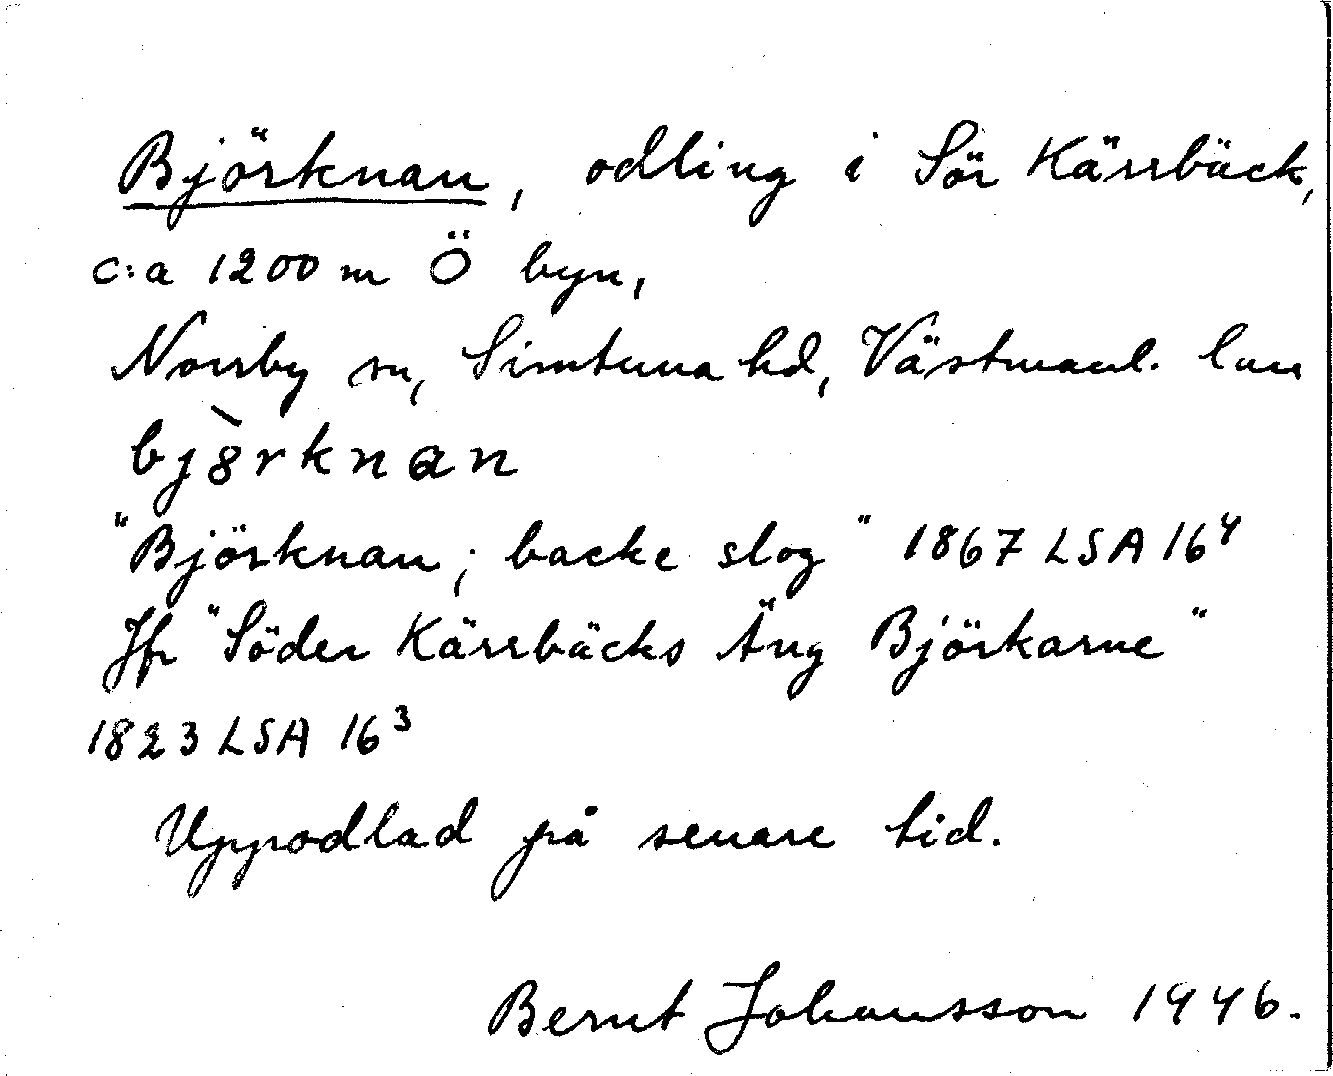 Björknan, odling i Sör Kärrbäck,
c:a 1200 m Ö byn,
Norrby sn, Simtuna hd, Västmanl. län
bjòrknan
"Björknan; backe slog" 1867 LSA 16⁴
Jfr "Söder Kärrbäcks Äng Björkarne"
1823 LSA 16³
Uppodlad på senare tid.
Bernt Johansson 1946.